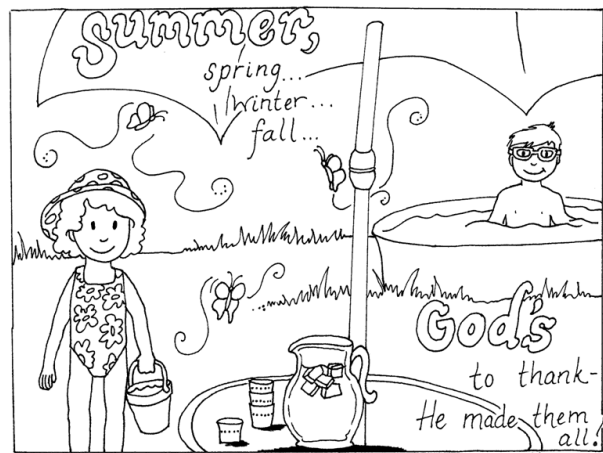 Summer,
spring...
winter...
fall...
God's
to thank-
He made them
all!